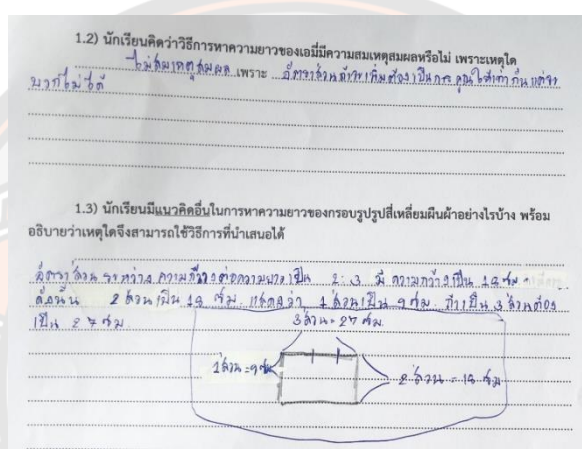 1.2) นักเรียนคิดว่าวิธีการหาความยาวของเอมี่มีความสมเหตุสมผลหรือไม่ เพราะเหตุใด
ไม่สมเหตุสมผล เพราะ อัตราส่วนถ้าจะเพิ่มต้องเป็นการคูณให้เท่ากัน แต่จะ
บวกไม่ได้
1.3) นักเรียนมีแนวคิดอื่นในการหาความยาวของกรอบรูปรูปสี่เหลี่ยมผืนผ้าอย่างไรบ้าง พร้อม
อธิบายว่าเหตุใดจึงสามารถใช้วิธีการที่นำเสนอได้
อัตราส่วนระหว่างความกว้างต่อความยาวเป็น 2:3 มีความกว้างเป็น 18 ซม
ดังนั้น 2 ส่วนเป็น 18 ซม. แสดงว่า 1 ส่วนเป็น 9 ซม. ถ้าเป็น 3 ส่วนต้อง
เป็น 27 ซม.
3 ส่วน = 27 ซม.
1 ส่วน = 9 ซม
2 ส่วน = 18 ซม